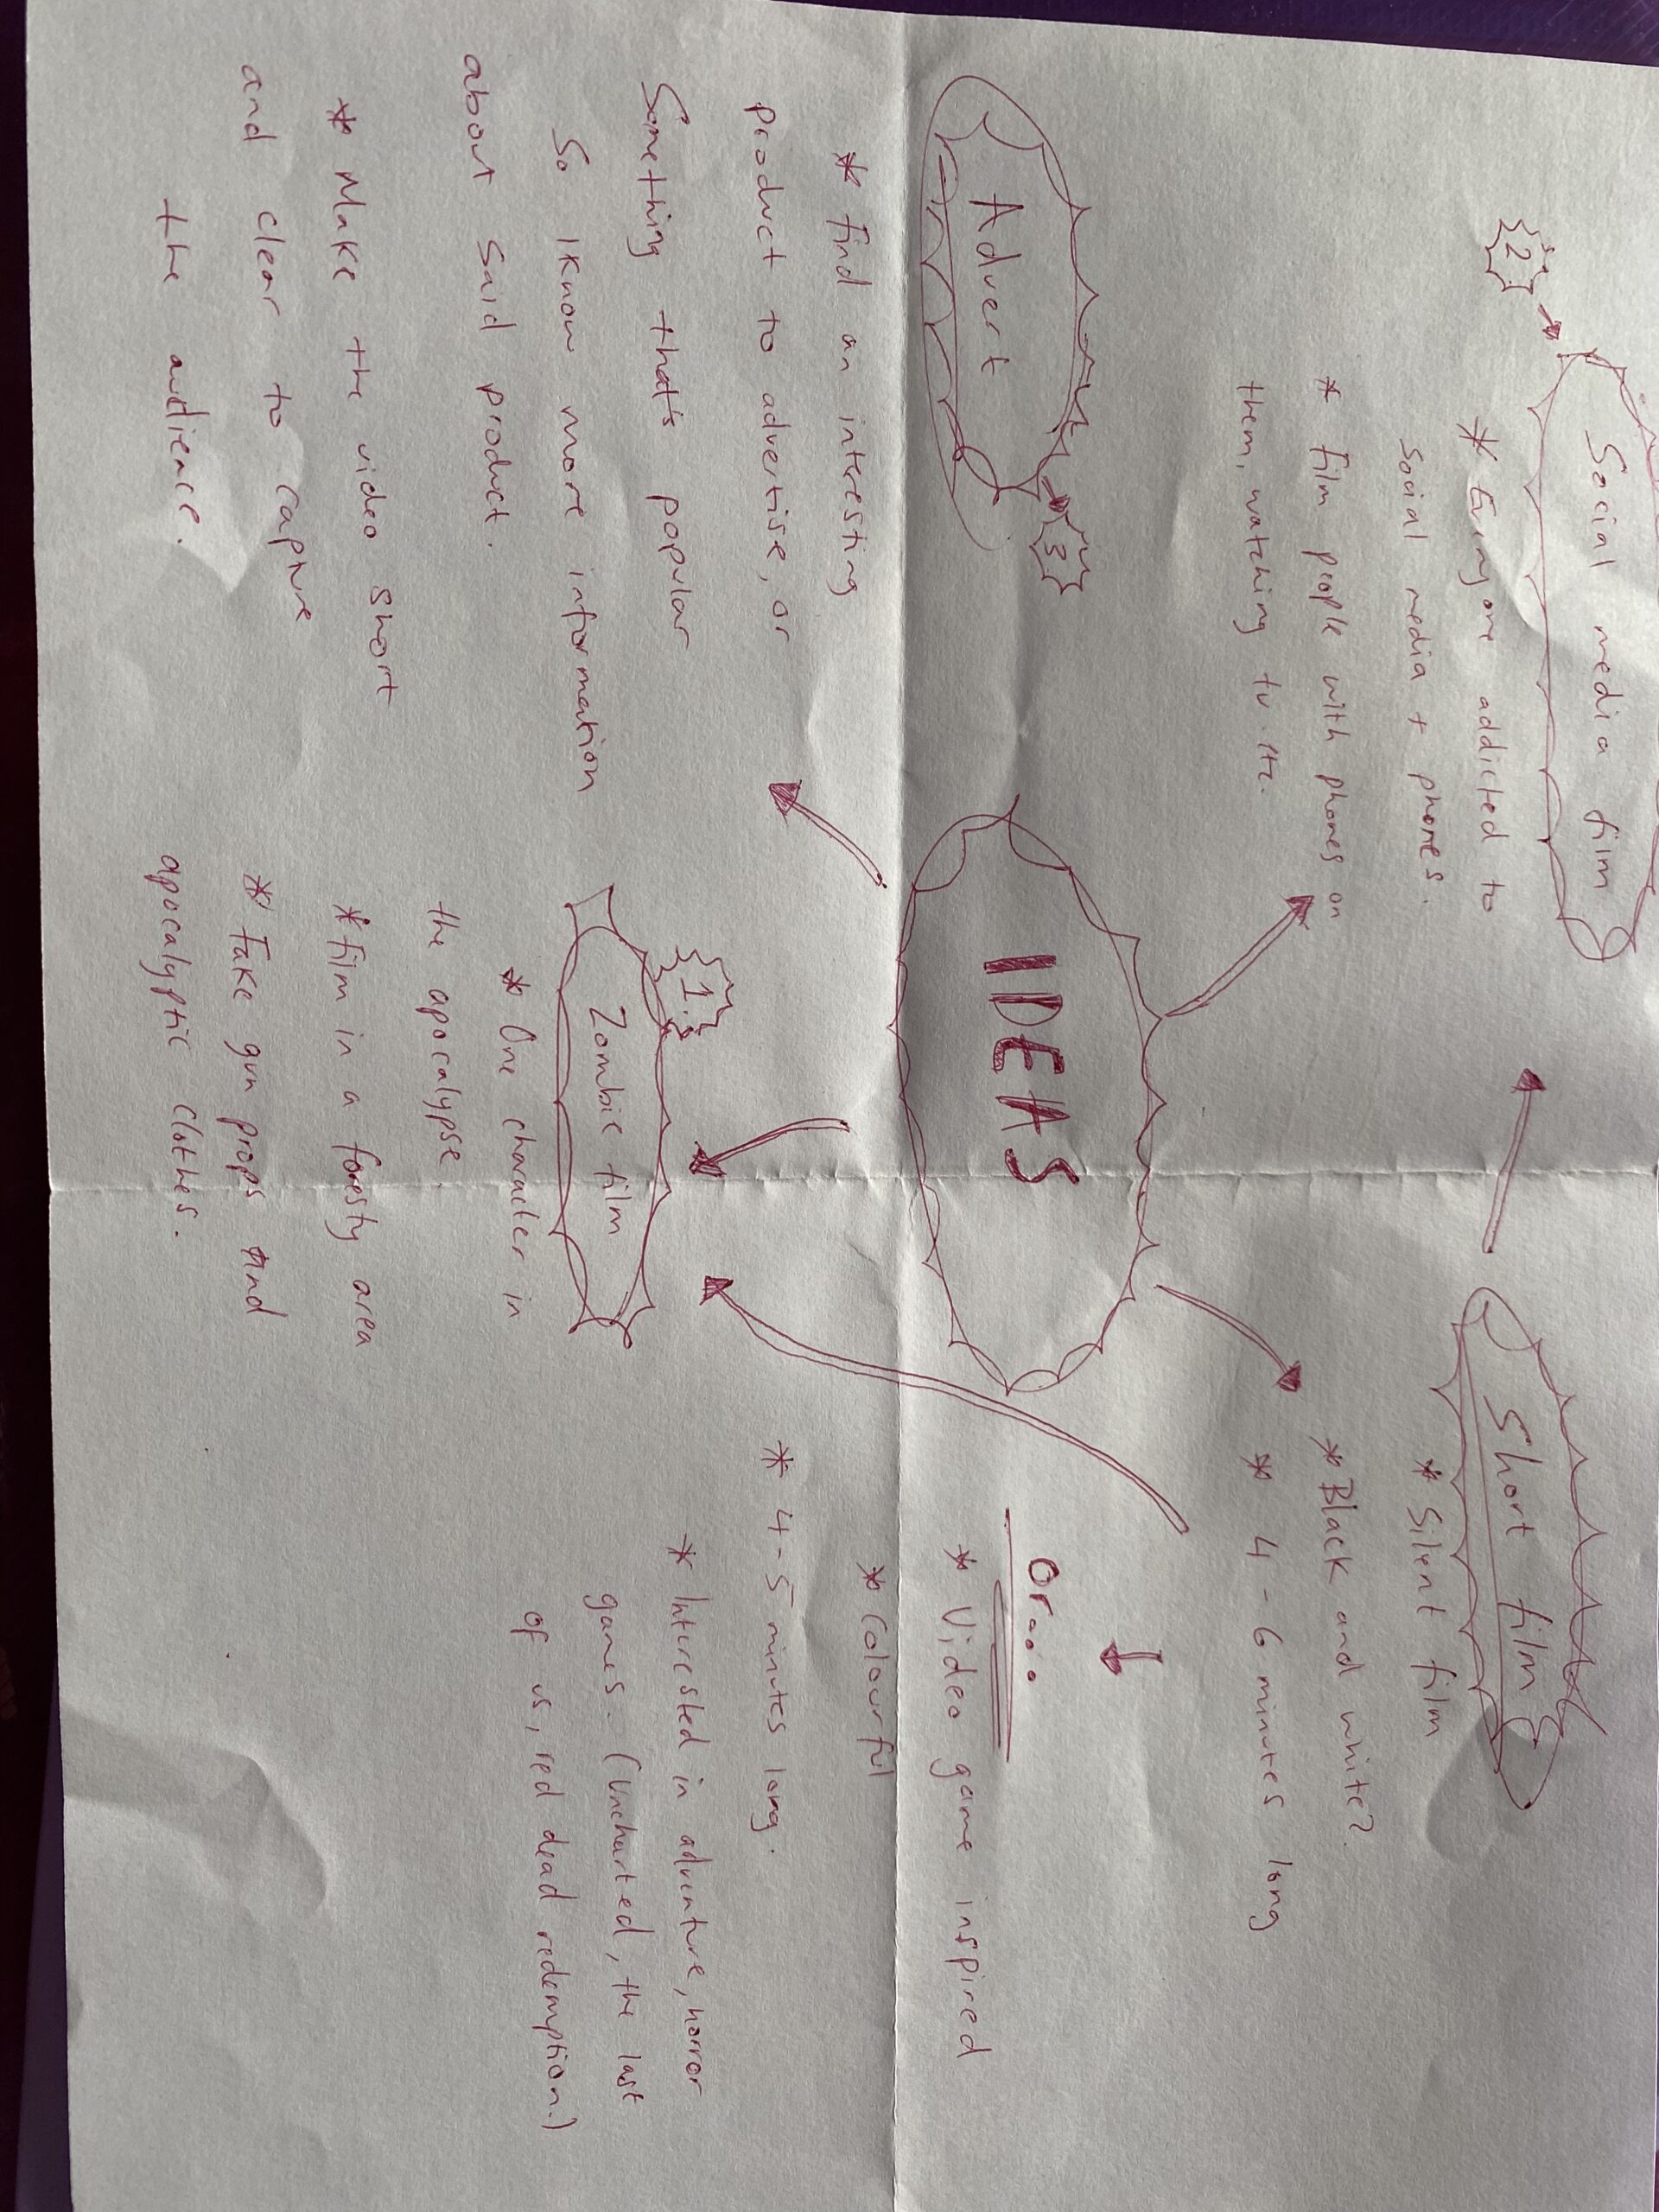 IDEAS
2.
Social media film
* Everyone addicted to
social media + phones.
* film people with phones on
them, watching tv. etc.
Short film
* Silent film
* Black and white?
* 4 - 6 minutes long
Or...
* Video game inspired
* Colourful
* 4 - 5 minutes long.
* Interested in adventure, horror
games. (Uncharted, the last
of us, red dead redemption.)
Advert
3.
* find an interesting
product to advertise, or
Something that's popular
So I know more information
about said product.
* Make the video short
and clear to capture
the audience.
1.
Zombie film
* One character in
the apocalypse.
* Film in a foresty area
* Fake gun props and
apocalyptic clothes.